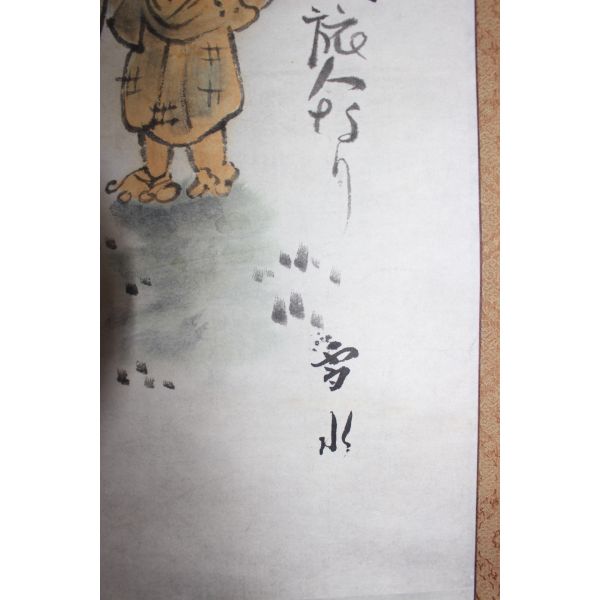 旅人なり
雪水